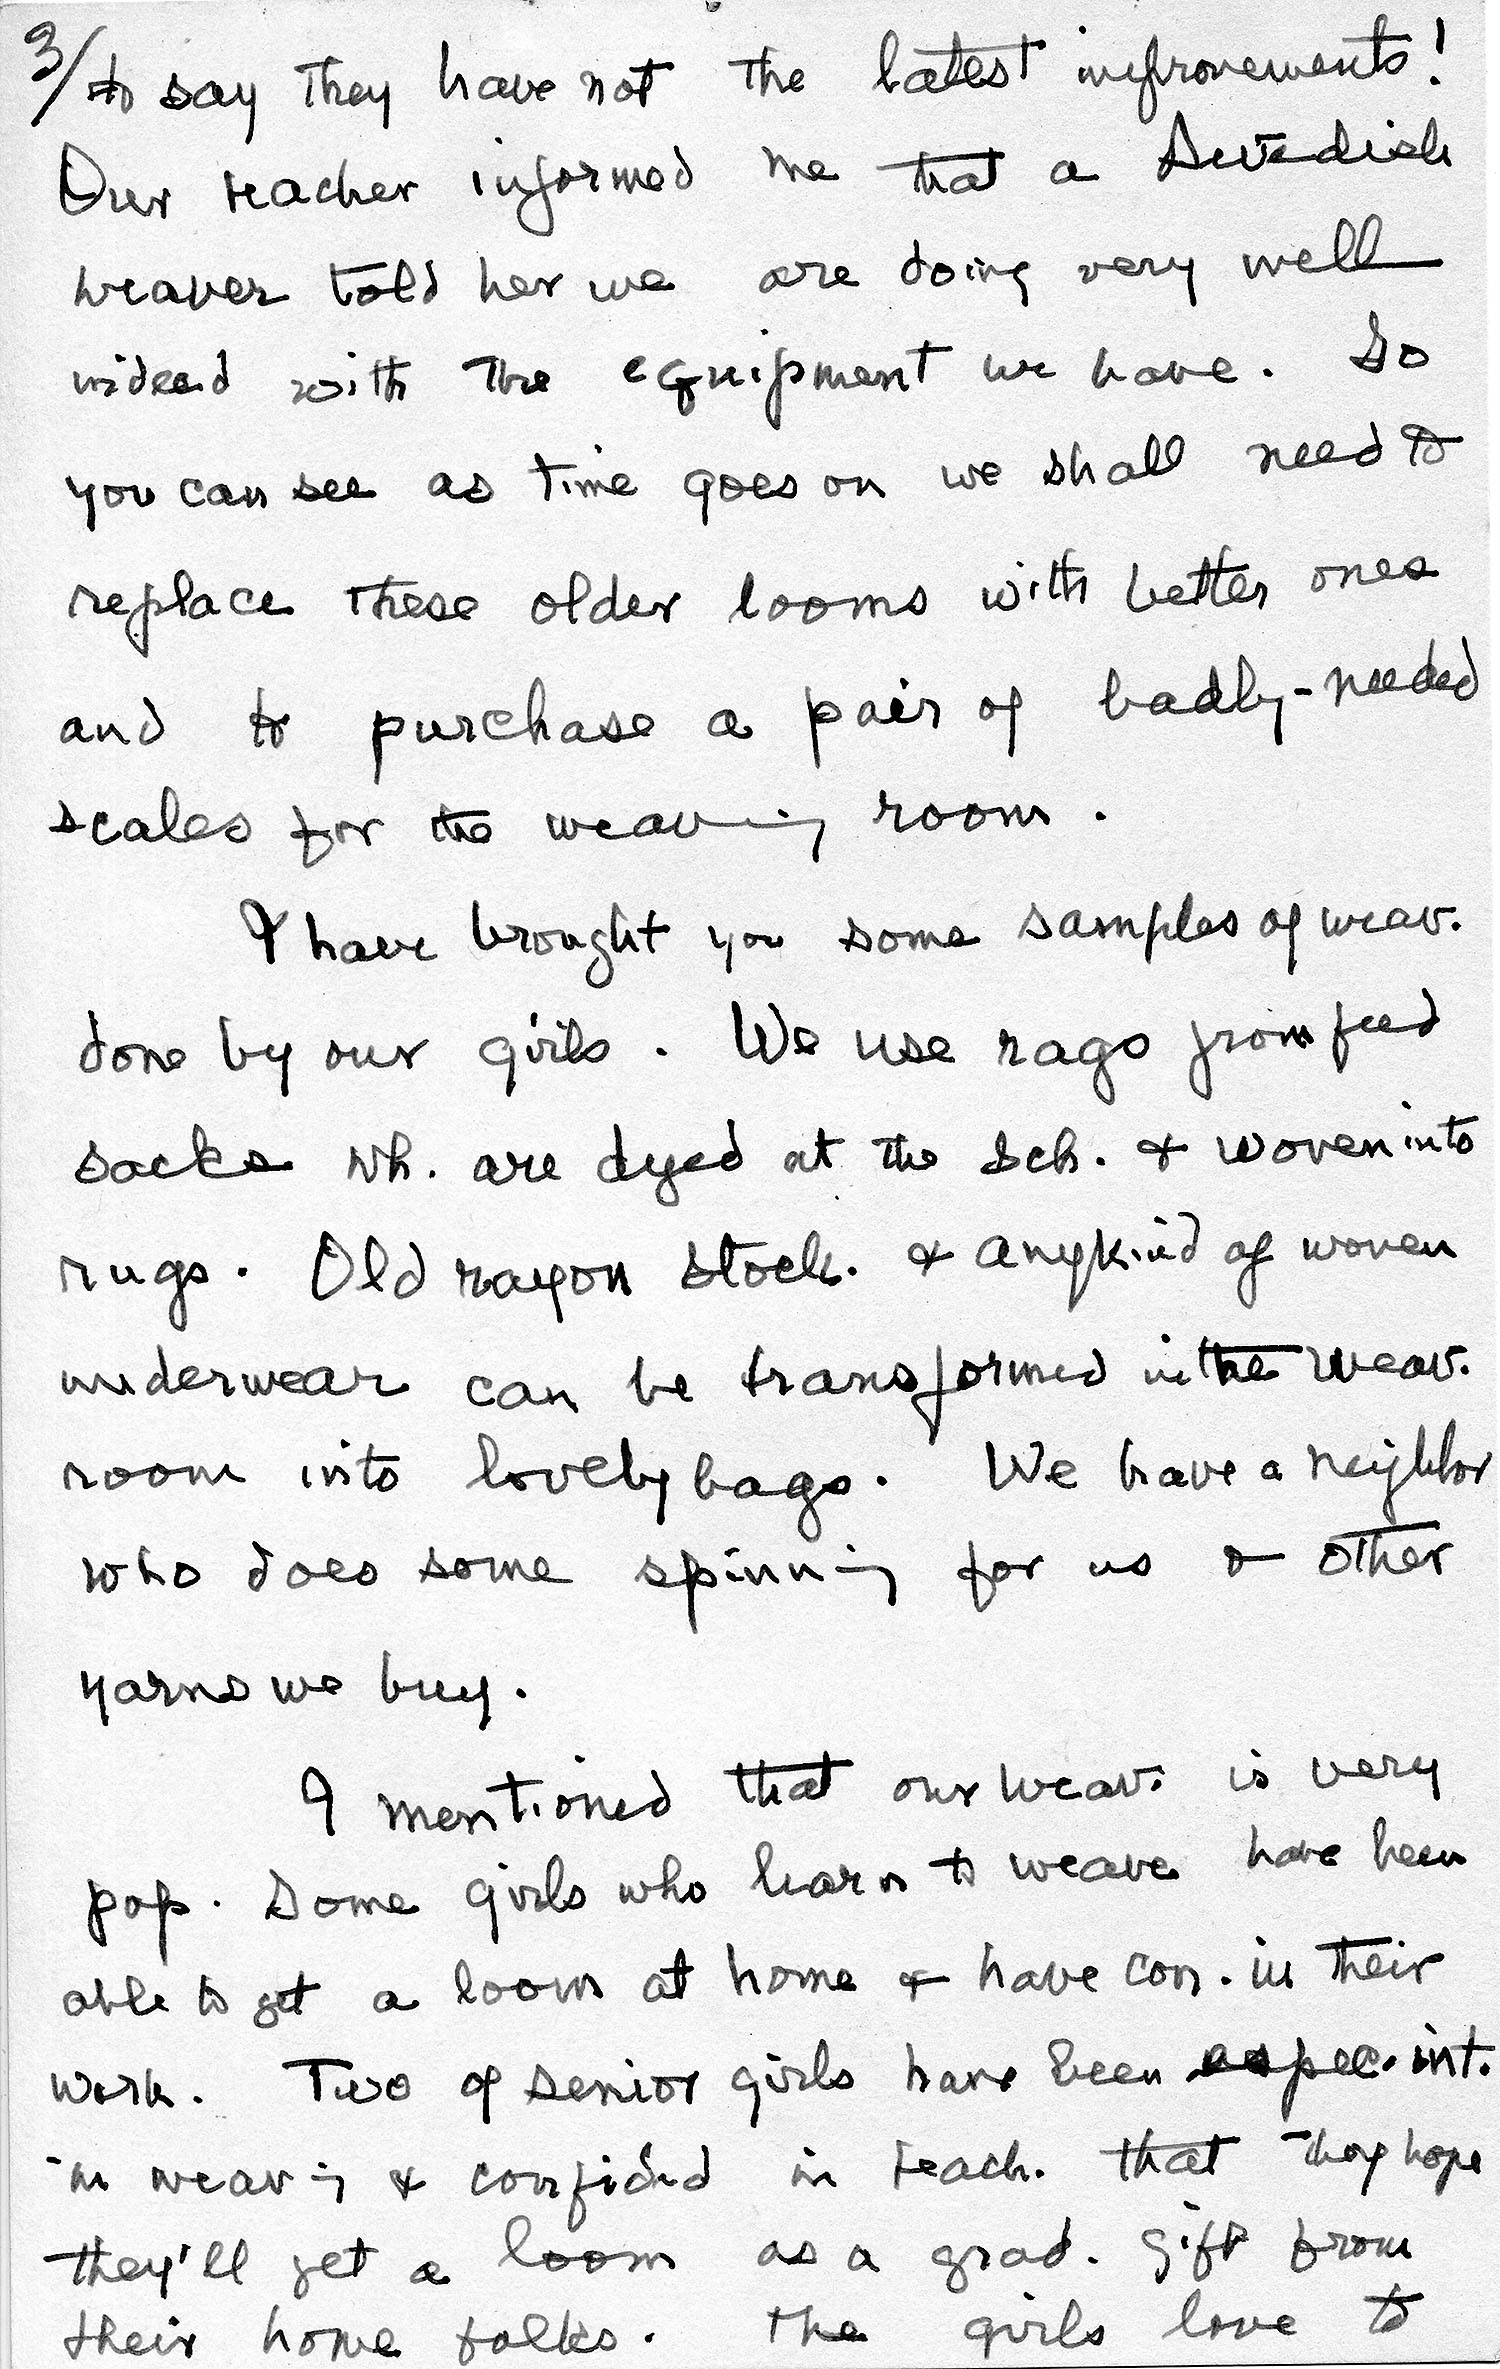 3/ to say they have not the latest improvements!
Our teacher informed me that a Swedish
weaver told her we are doing very well
indeed with the equipment we have. So
you can see as time goes on we shall need to
replace these older looms with better ones
and to purchase a pair of badly-needed
scales for the weaving room.
I have brought you some samples of weav.
done by our girls. We use rags from feed
sacks wh. are dyed at the sch. & woven into
rugs. Old rayon stock. & any kind of woven
underwear can be transformed in the weav.
room into lovely bags. We have a neighbor
who does some spinning for us & other
yarns we buy.
I mentioned that our weav. is very
pop. Some girls who learn to weave have been
able to get a loom at home & have con. in their
work. Two of senior girls have been espec. int.
in weaving & confided in teach. that they hope
they'll get a loom as a grad. gift from
their home folks. The girls love to